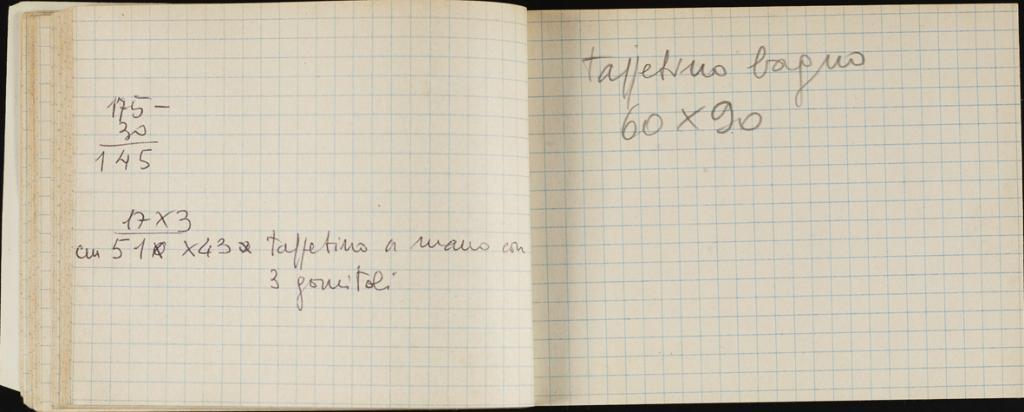 175-
30
145
17x3
cm 51 x43 tappetino a mano con
3 gomitoli
tappetino bagno
60x90